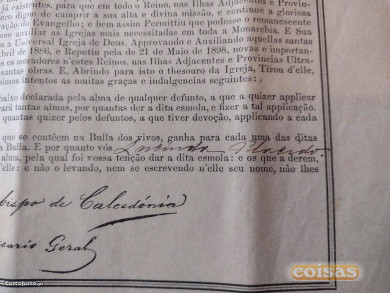 já existentes, para que em todo o Reino, nas Ilhas Adjacentes e Provin-
ero digno de cumprir a sua alta e divina missão, e continue a gloriosa
ação do Evangelho; e bem assim Permittiu que podesse o remanescente
omo auxiliar as Igrejas mais necessitadas em toda a Monarchia. E Sua
a Universal Igreja de Deus, Approvando e Auxiliando aquellas santas
bril de 1886, e Repetiu pela de 21 de Maio de 1898, novas e importan-
os moradores n'estes Reinos, nas Ilhas Adjacentes e Provincias Ultra-
santas obras. E, Abrindo para isto o thesouro da Igreja, Tirou d'elle,
simas intentos as muitas graças e indulgencias seguintes:
baixo declarada pela alma de qualquer defunto, a que a quizer applicar
rará tantas almas, por quantas der a dita esmola, e fizer a tal applicação.
quantas quizer pelos defuntos, a que tiver devoção, applicando a cada
que se contêem na Bulla dos vivos, ganha para cada uma das ditas
a Bulla. E por quanto vós
alma, pela qual foi vossa tenção dar a dita esmola: e os que a derem,
'elle: e não o levando, nem se escrevendo n'elle seu nome, não lhes
bispo de Calcedónia
sario Geral
CustoJusto.pt
coisas